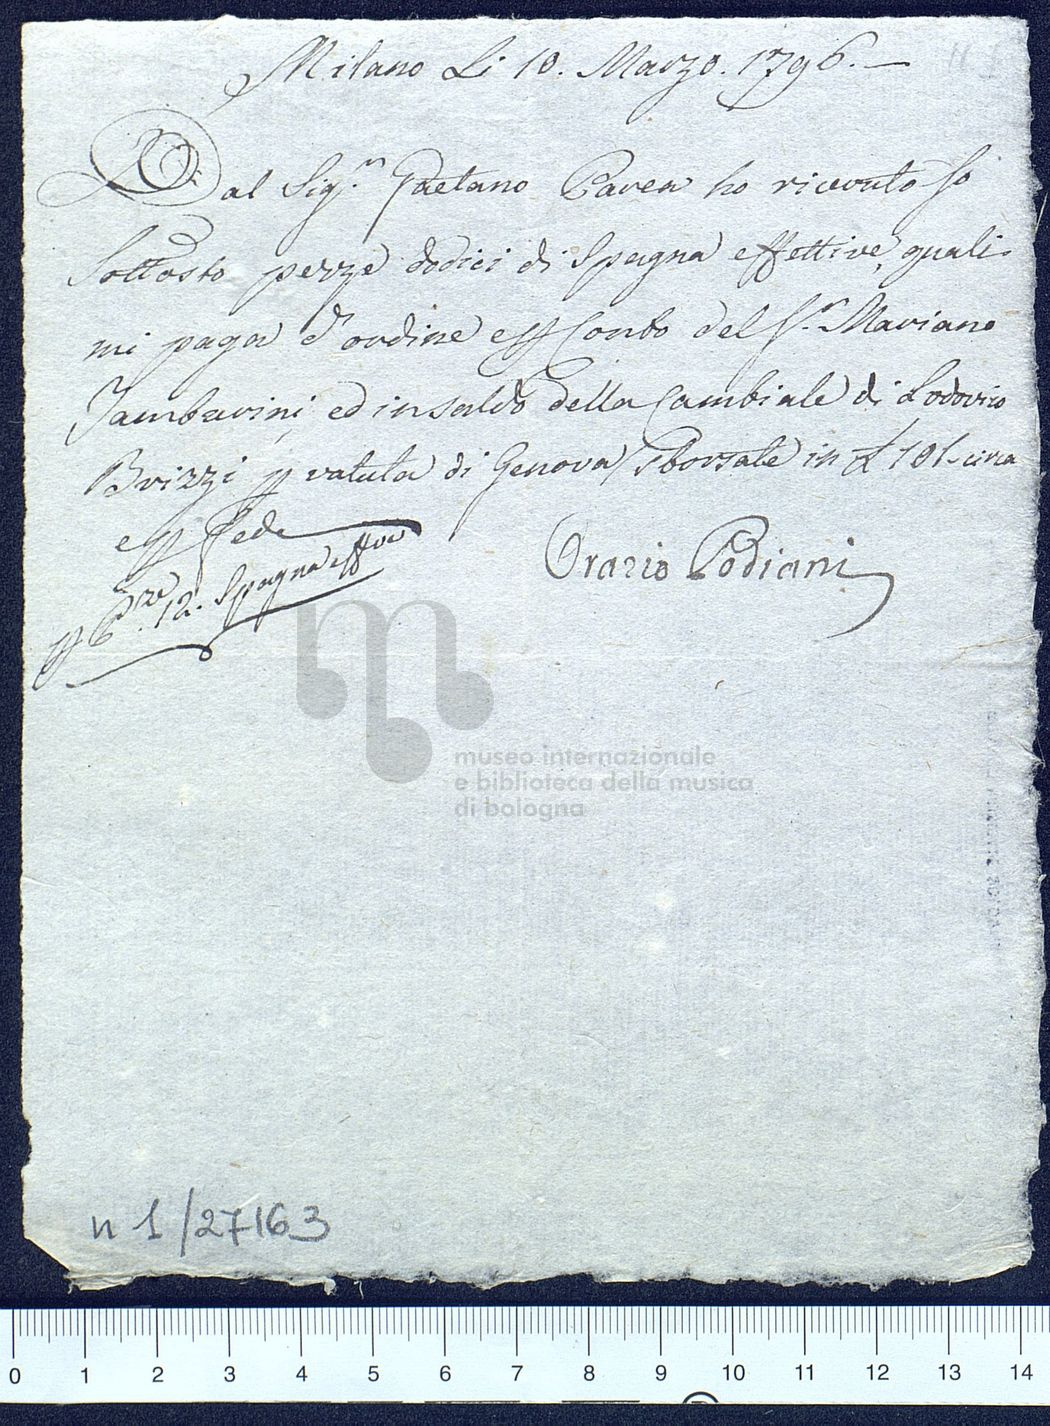 Milano Li 10. Marzo. 1796. —
Dal Sig.r Gaetano Pavea ho ricevuto Jo
Sottosto pezze dodici di Spagna effettive, quali
mi paga d'ordine e p Conto del S.r Mariano
Tamburini, ed in saldo della Cambiale di Lodovico
Brizzi p valuta di Genova, sborsate in £ 101-
e p fede
Orazio Podiani
p P.ze 12. Spagna eff.ve
museo internazionale
e biblioteca della musica
di bologna
n 1/27163
0 1 2 3 4 5 6 7 8 9 10 11 12 13 14